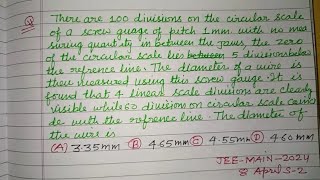 Q There are 100 divisions on the circular scale
of a screw guage of pitch 1mm. with no mea
suring quantity in between the jaws, the zero
of the circular scale lies 5 divisions below
the refrence line. The diameter of a wire is
then measured using this screw gauge. It is
found that 4 linear scale divisions are clearly
visible while 60 division on circular scale coinci
de with the refrence line. The diameter of
the wire is
(A) 3.35mm (B) 4.65mm (C) 4.55mm (D) 4.60mm
JEE-MAIN-2024
8 April S-2